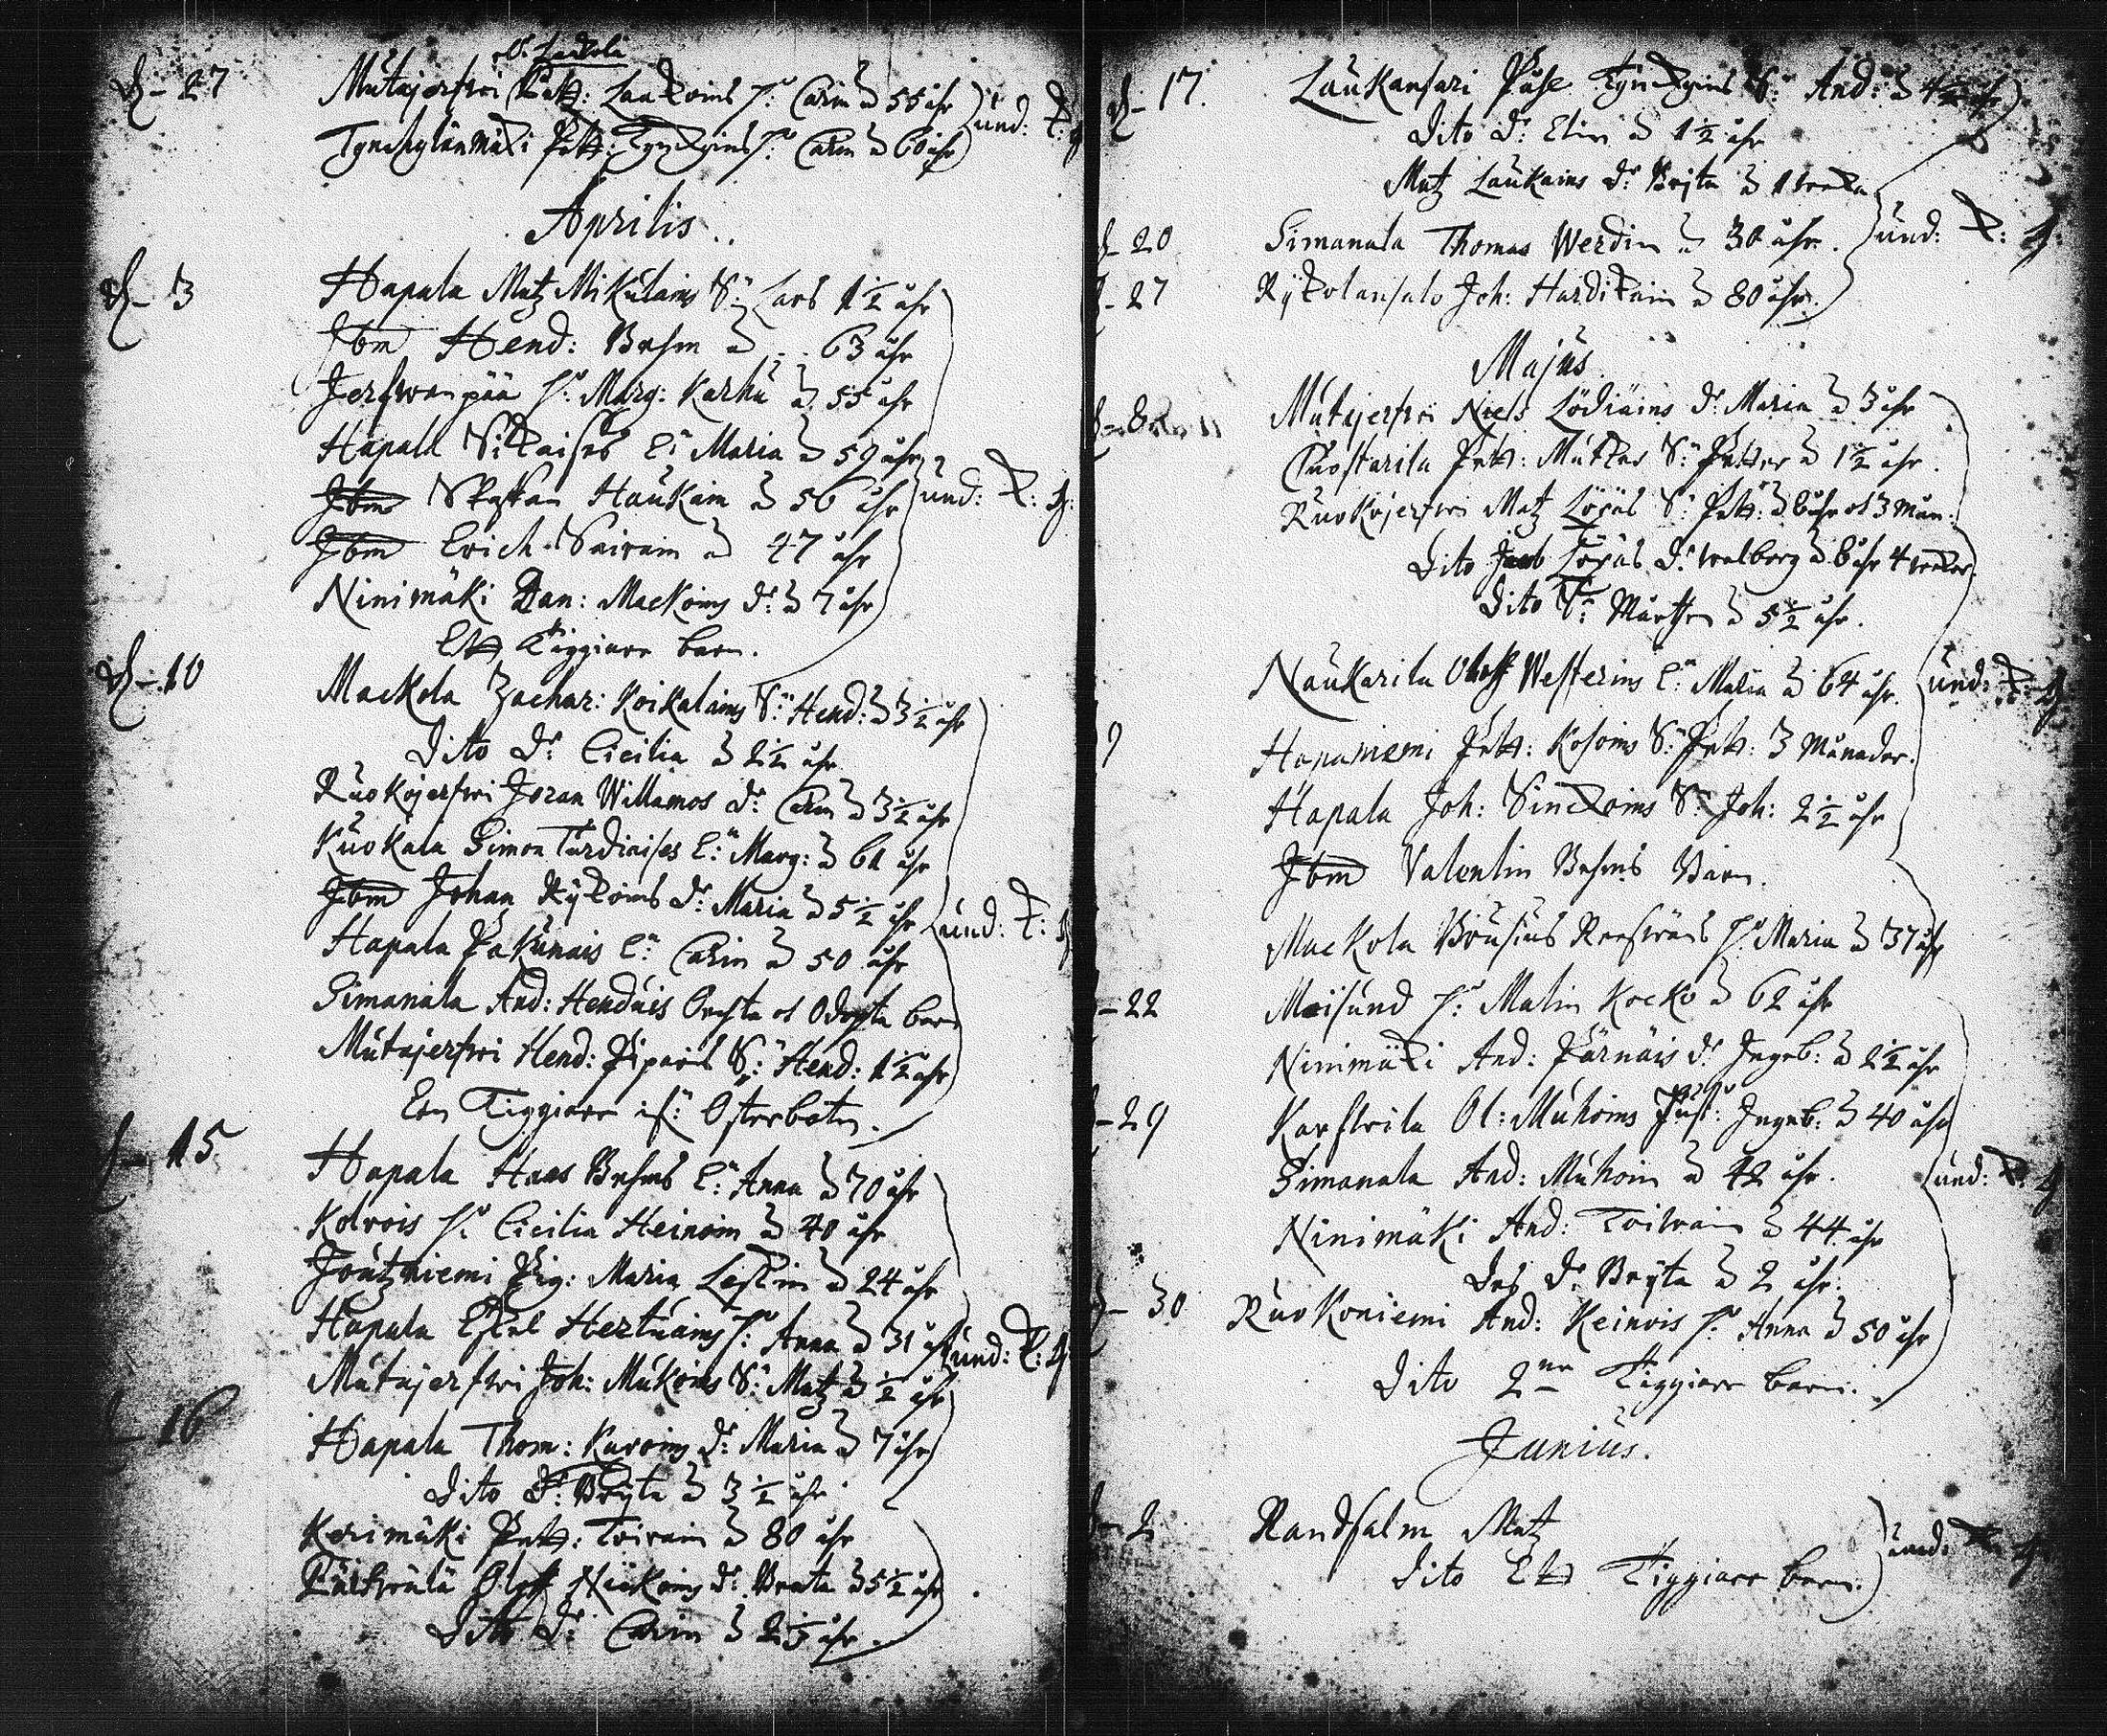 d. 27 Mutajerfwi Pett: Laakoins h: Carin a 55 åhr und: T: g:
Tynckylänmäki Pett: Tynckyins h: Carin a 60 åhr
Aprilis
d. 3 Hapala Matz Mikulains S: Lars 1½ åhr
Ibm Hend: Behm a 63 åhr
Jerfwenpää h: Marg: Karhu a 55 åhr
Hapala Sikaises E: Maria a 59 åhr
Ibm Staffan Haukain a 56 åhr und: T: g:
Ibm Erich Sairain a 47 åhr
Ninimäki Dan: Mackoins d: a 7 åhr
Ett Tiggiare barn.
d. 10 Mackola Zachar: Koikalains S: Hend: a 3½ åhr
Dito D: Cicilia a 2½ åhr
Ruokojerfwi Joran Willamos d: Carin a 3½ åhr
Kuokala Simon Turdiaises E: Marg: a 61 åhr
Ibm Johan Rykoins d: Maria a 5½ åhr und: T:
Hapala Pakunais E: Carin a 50 åhr
Simanala And: Henduis Oechta of Odopta barn
Mutajerfwi Hend: Piparis S: Hend: 1½ åhr
Een Tiggiare if: Osterboten.
15 Hapala Hans Behms E: Anna a 70 åhr
Kolvois h: Cicilia Heinoin a 40 åhr
Joutzniemi Pig: Maria Leskin a 24 åhr
Hapala Eskel Hertuains h: Anna a 31 åhr und: T: g:
Mutajerfwi Joh: Mukoins S: Matz a ½ åhr
16 Hapala Thom: Kuroins d: Maria a 7 åhr
Dito d: Bryta a 3½ åhr
Kerimäki Pett: Toivain a 80 åhr
Oloff Nickoins d: Beata a 5½ åhr
Dito d: Carin a 2½ åhr.
d. 17. Laukansari Påfe Tynckyins S: And: a 4½ åhr
Dito d: Elin a 1½ åhr
Matz Laukains d: Bryta a 1 wecka
20 Simanala Thomas Werdin a 30 åhr. und: T: g:
27 Rykolansalo Joh: Hardikain a 80 åhr.
Majus
8 Mutajerfwi Niels Lödiäins d: Maria a 3 åhr
Puostarila Pett: Mutkas S: Petter a 1½ åhr.
Ruokojerfwi Matz Löxäs S: Pett: a 6 åhr of 3 Mån:
Dito Jacob Löxäs d: walborg a 8 åhr 4 weckor
Dito S: Mårthen a 5½ åhr.
Naukarila Oloff Westerins E: Maria a 64 åhr. und: T: g:
9 Hapaniemi Pett: Kosoins S: Pett: 3 Månader.
Hapala Joh: Sinckoins S: Joh: 2½ åhr
Ibm Valentin Behms Barn.
Mackola Brusius h: Maria a 37 åhr
22 Moisund h: Malin Kocko a 62 åhr
Ninimäki And: Pärnäis d: Ingeb: a 2½ åhr
29 Karstrila Ol: Muhoins Ingeb: a 40 åhr
Simanala And: Muhoin a 42 åhr. und: T: g
Ninimäki And: Toiwain a 44 åhr
Des d: Bryta a 2 åhr.
30 Ruokoniemi And: Keinois h: Anna a 50 åhr
Dito 2ne Tiggiare barn.
Junius.
2 Randsalm Matz
Dito Ett Tiggiare barn. und: T: g: